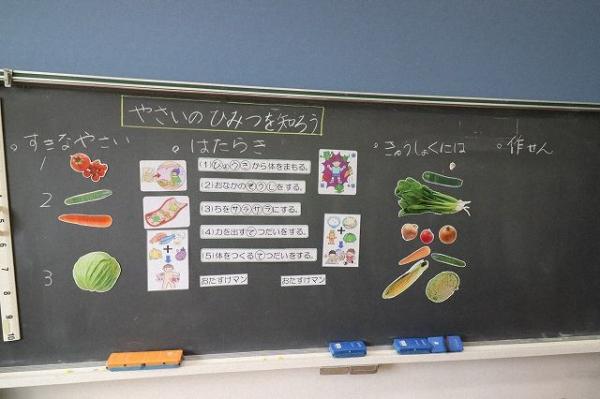 やさいのひみつを知ろう
。すきなやさい
。はたらき
。きゅうしょくには
。作せん
1
2
3
(1)びょうきから体をまもる。
(2)おなかのそうじをする。
(3)ちをサラサラにする。
(4)力を出すてつだいをする。
(5)体をつくるてつだいをする。
おたすけマン
おたすけマン
4
5
6
7
8
9
10